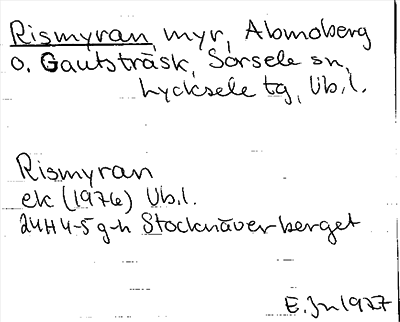 Rismyran, myr, Abmoberg
o. Gautsträsk, Sorsele sn,
Lycksele tg, Vb.l.
Rismyran
ek (1976) Vb.l.
24H 4-5 g-h Stocknäverberget
E. Jn 1977